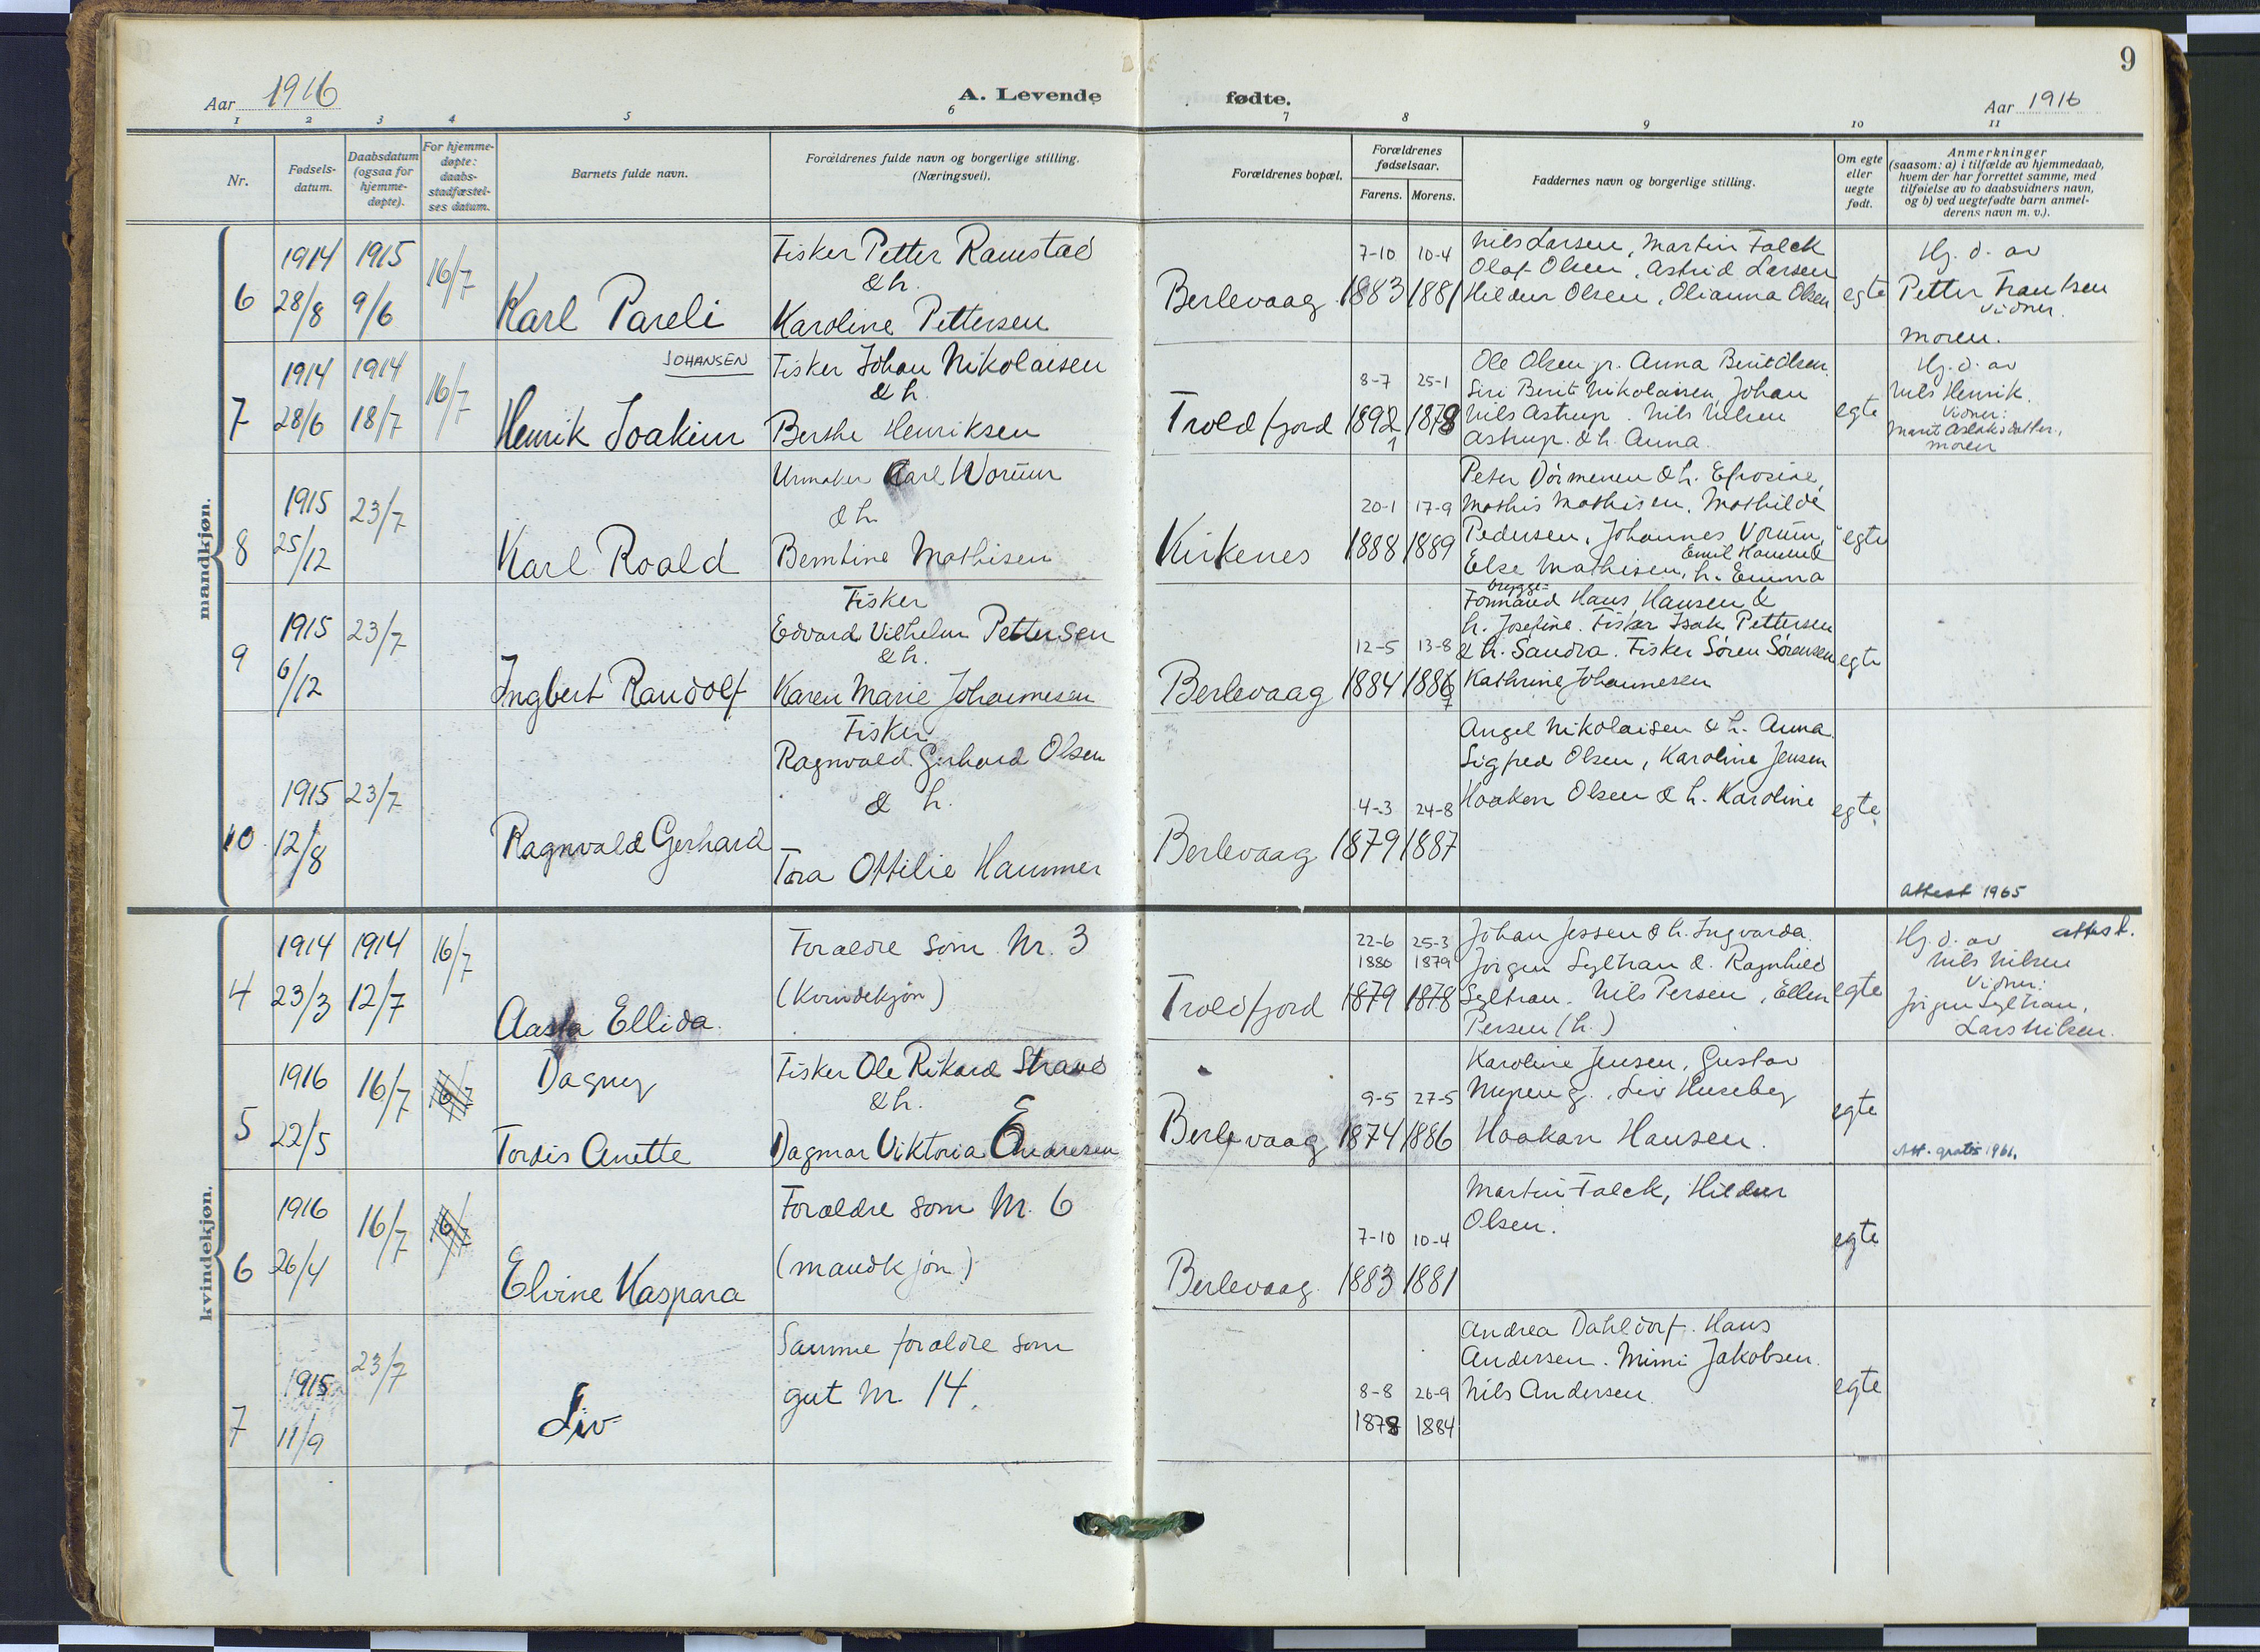 9
Aar 1916
A. Levende fødte.
Aar 1916
1 2 3 4 5 6 7 8 9 10 11
Nr.
Fødsels-
datum.
Daabsdatum
(ogsaa for
hjemme-
døpte).
For hjemme-
døpte:
daabs-
stadfæstel-
ses datum.
Barnets fulde navn.
Forældrenes fulde navn og borgerlige stilling.
(Næringsvei).
Forældrenes bopæl.
Forældrenes
fødselsaar.
Farens. Morens.
Faddernes navn og borgerlige stilling.
Om egte
eller
uegte
født.
Anmerkninger
(saasom: a) i tilfælde av hjemmedaab,
hvem der har forrettet samme, med
tilføielse av to daabsvidners navn,
og b) ved uegtefødte barn anmel-
derens navn m. v.).
mandkjøn.
6
1914
28/8
1915
9/6
16/7
Karl Pareli
Fisker Petter Ramstad
& h.
Karoline Pettersen
Berlevaag
7-10
1883
10-4
1881
Nils Larsen, Martin Falck
Olaf Olsen, Astrid Larsen
Hildur Olsen, Olianna Olsen
egte
Hj. d. av
Petter Frantsen
Vidner.
moren.
7
1914
28/6
1914
18/7
16/7
JOHANSEN
Henrik Joakim
Fisker Johan Nikolaisen
& h.
Berthe Henriksen
Troldfjord
8-7
1892
1
25-1
1878
Ole Olsen jr. Anna Berit Olsen.
Siri Berit Nikolaisen, Johan
Nils Astrup. Nils Nilsen
Astrup. & h. Anna.
egte
Hj. d. av
Nils Henrik.
Vidner:
Marit Aslaksdatter,
moren
8
1915
25/12
23/7
Karl Roald
Urmaker Karl Worum
& h
Berntine Mathisen
Kirkenes
20-1
1888
17-9
1889
Peter Dørmenen & h. Efrosine,
Mathis Mathisen, Mathilde
Pedersen, Johannes Vorum,
Else Mathisen, h. Emma
egte
9
1915
6/12
23/7
Ingbert Randolf
Fisker
Edvard Vilhelm Pettersen
& h.
Karen Marie Johannesen
Berlevaag
12-5
1884
13-8
1886
7
brygge-
Formand Hans Hansen &
h. Josefine. Fisker Isak Pettersen
& h. Sandra. Fisker Søren Sørensen
Kathrine Johannesen
egte
10
1915
12/8
23/7
Ragnvald Gerhard
Fisker
Ragnvald Gerhard Olsen
& h.
Tora Ottilie Hammer
Berlevaag
4-3
1879
24-8
1887
Angel Nikolaisen & h. Anna.
Sigfred Olsen, Karoline Jensen
Haakon Olsen & h. Karoline
egte.
Attest 1965
kvindekjøn.
4
1914
23/3
1914
12/7
16/7
Aasta Ellida.
Foraldre som Nr. 3
(Kvindekjøn)
Troldfjord
22-6
1880
1879
25-3
1879
1878
Johan Jessen & h. Ingvarda.
Jørgen Syltran &. Ragnhild
Syltran. Nils Persen, Ellen
Persen (h.)
egte
attest.
Hj. d. av
Nils Nilsen
Vidner:
Jørgen Syltran,
Lars Nilsen.
5
1916
22/5
16/7
16/7
Dagny
Tordis Anette
Fisker Ole Rikard Strand
& h.
Dagmar Viktoria Enaresen
Berlevaag
9-5
1874
27-5
1886
Karoline Jensen, Gustav
Nupen g., Liv Huseby
Haakan Hansen.
egte
Att. gratis 1961.
6
1916
26/4
16/7
16/7
Elvine Kaspara
Foraldre som Nr. 6
(mandkjøn)
Berlevaag.
7-10
1883
10-4
1881
Martin Falck, Hildur
Olsen.
egte
7
1915
11/9
23/7
Liv
Samme foraldre som
gut Nr. 14.
8-8
1878
26-9
1884
Andrea Dahldorf. Hans
Andersen. Mimi Jakobsen.
Nils Andersen.
egte